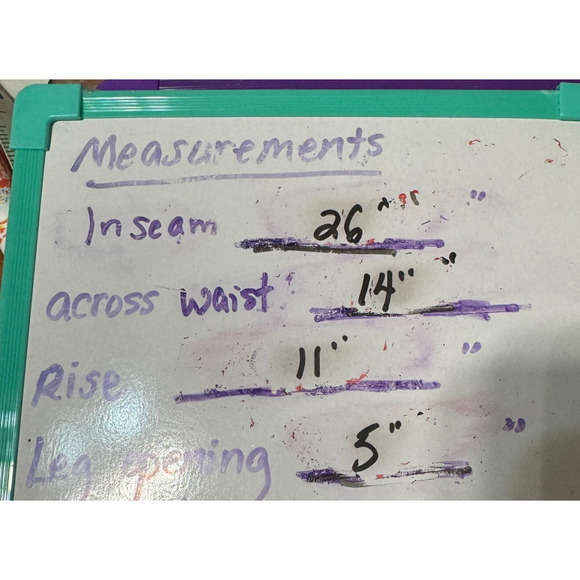 Measurements
Inseam 26" "
across waist 14" "
Rise 11" "
Leg opening 5" "